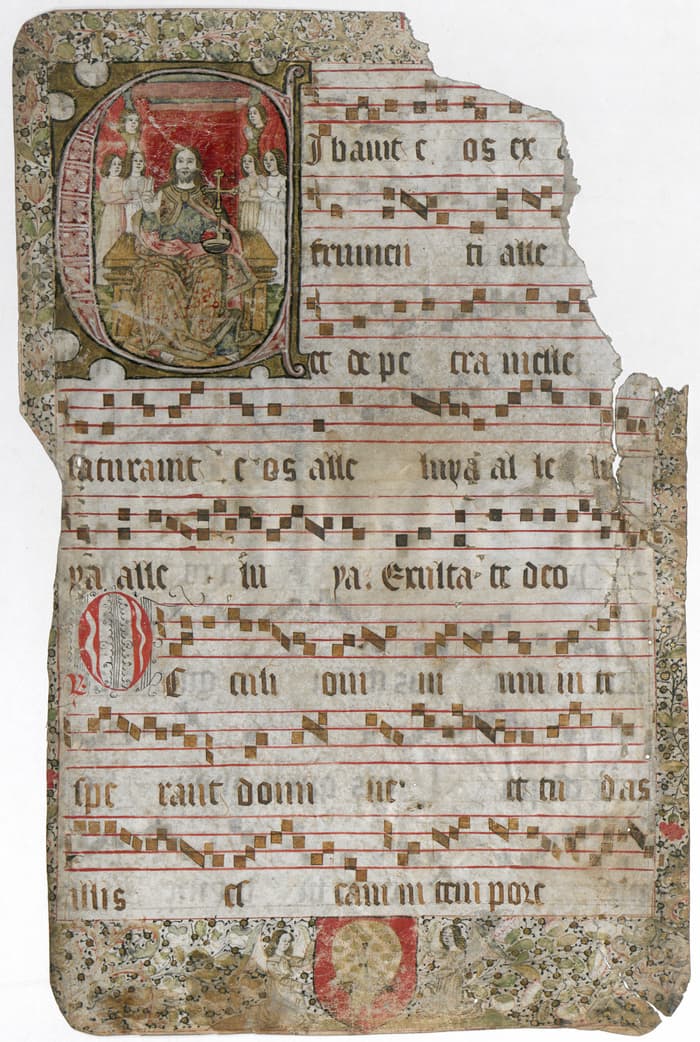 Cibavit e os ex a
frumen ti alle
et de pe tra melle
saturavit e os alle luya al le lu
ya alle lu ya. Exulta te deo
℟ OC culi om ni um in te
spe rant domi ne et tu das
illis es cam in tem pore